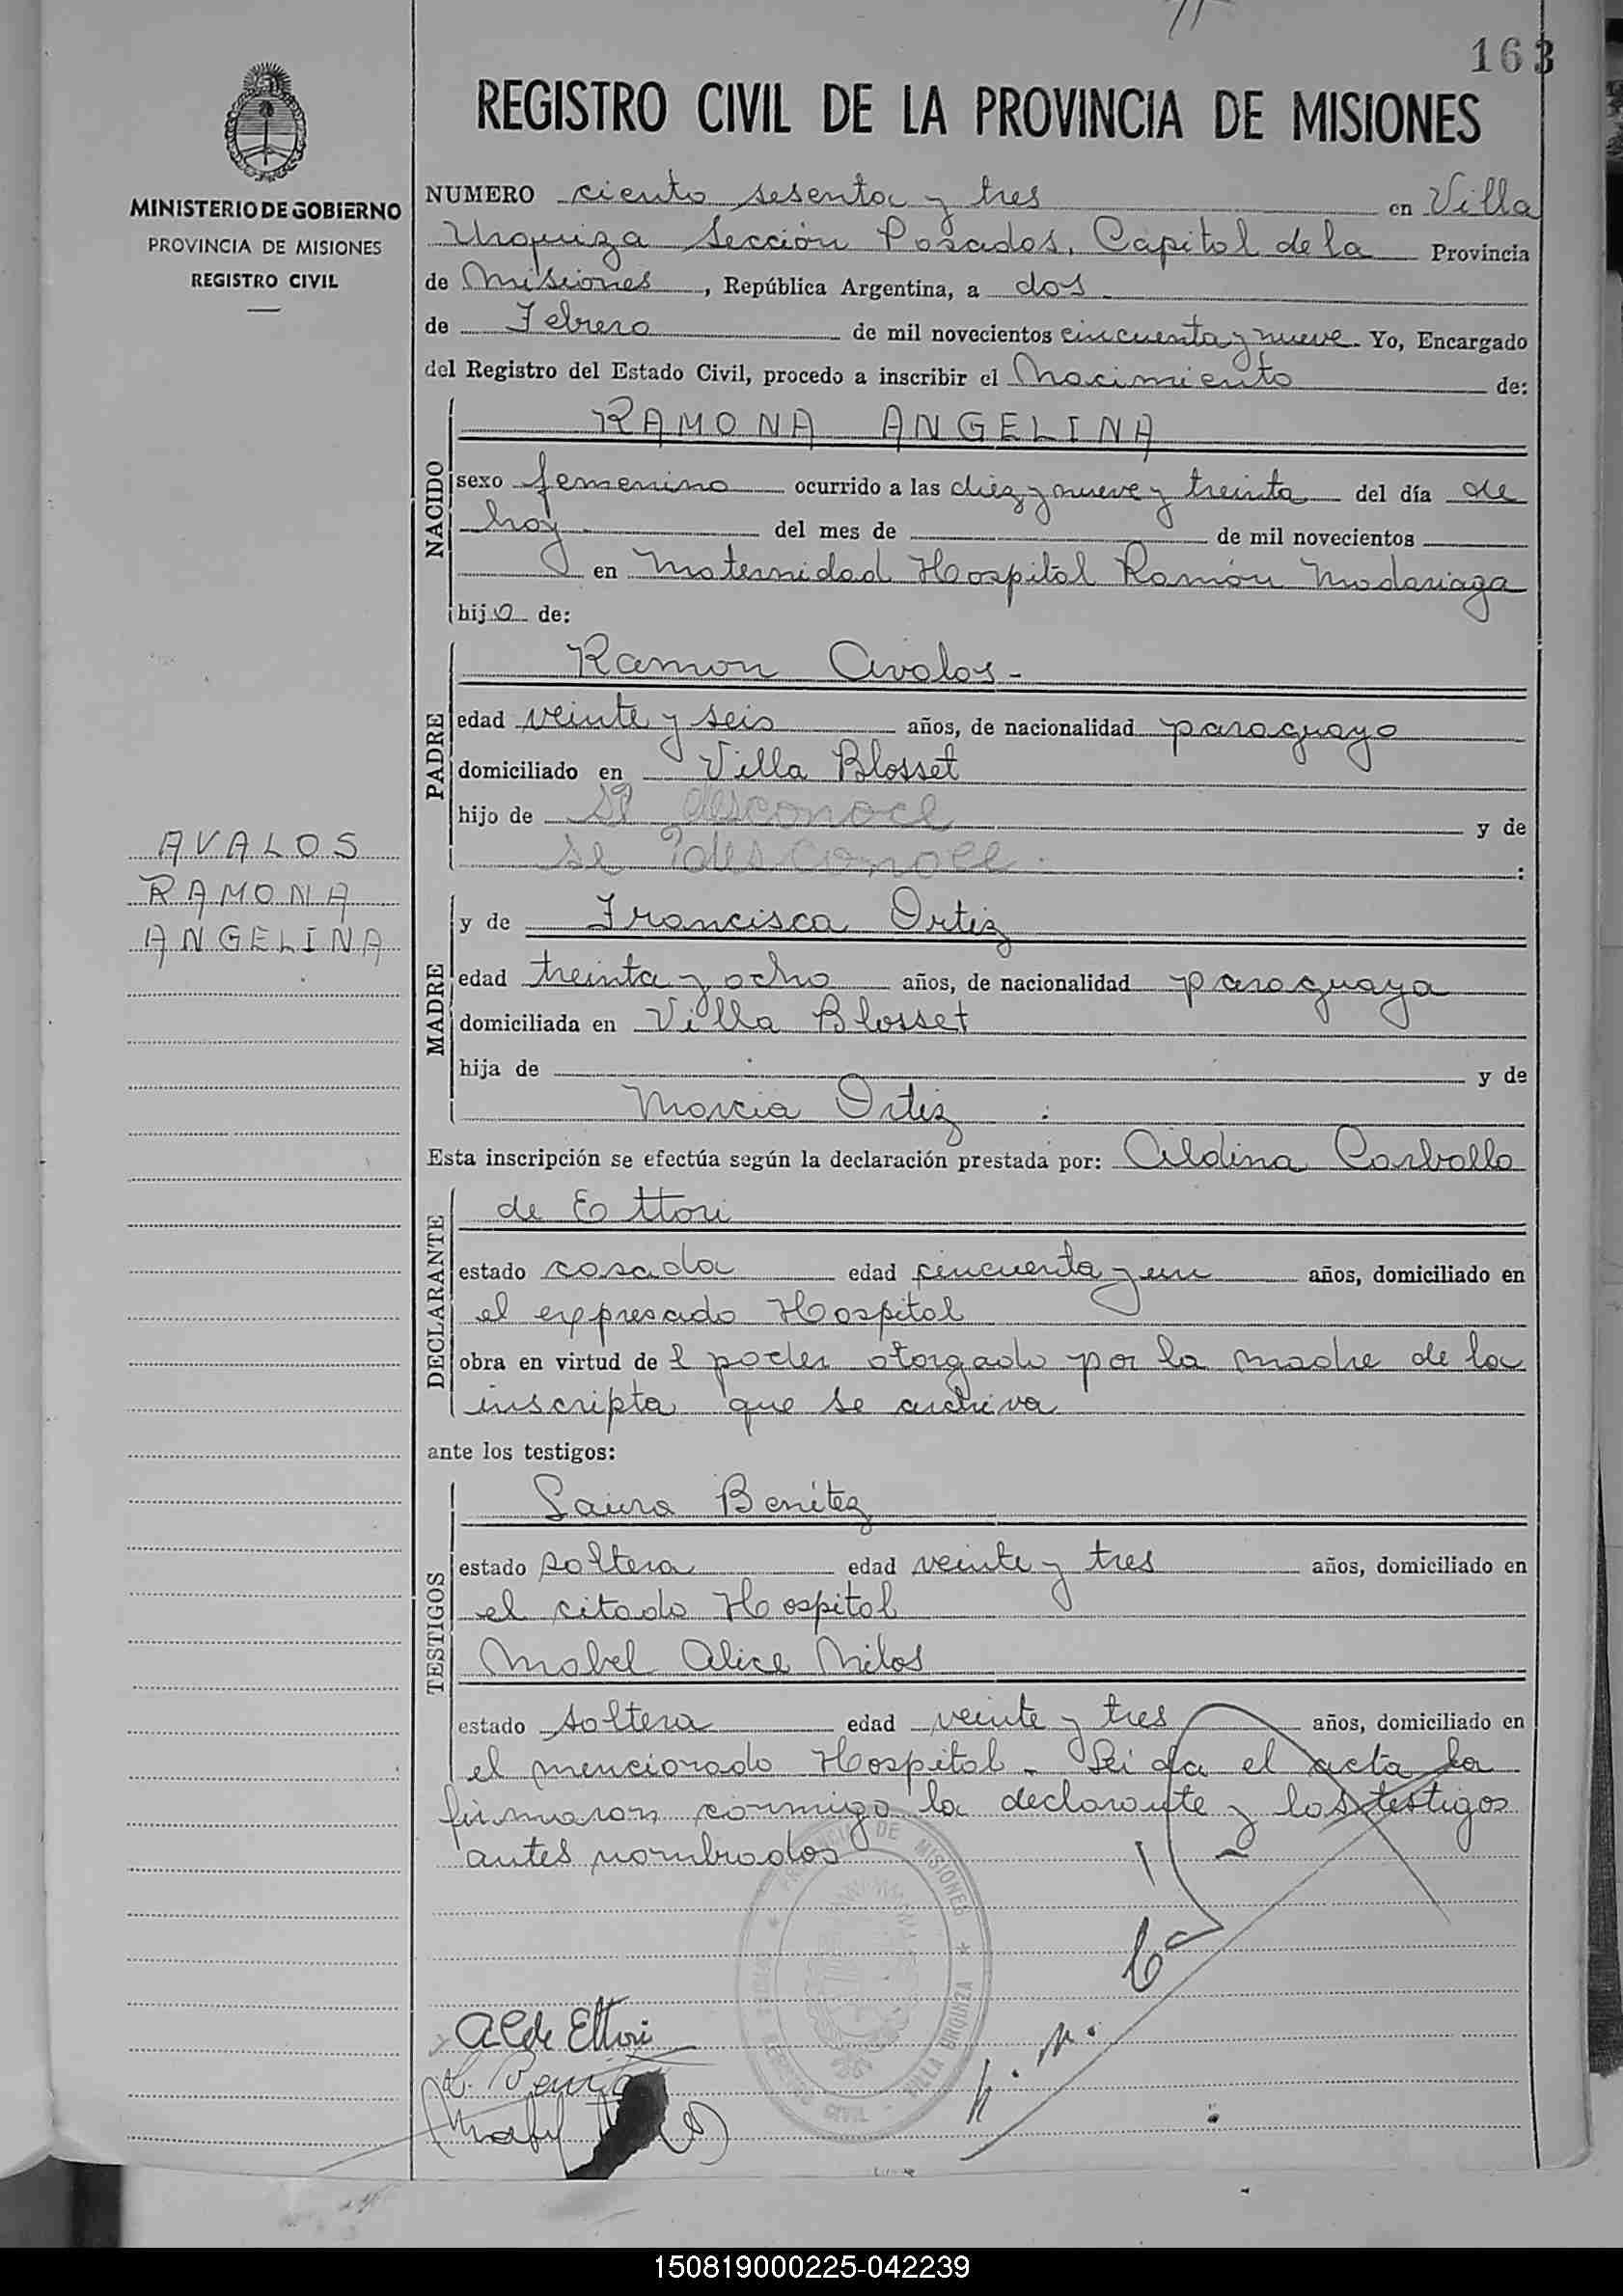 163
REGISTRO CIVIL DE LA PROVINCIA DE MISIONES
MINISTERIO DE GOBIERNO
PROVINCIA DE MISIONES
REGISTRO CIVIL
NUMERO ciento sesenta y tres en Villa
Urquiza Sección Posadas, Capital de la Provincia
de Misiones, República Argentina, a dos
de Febrero de mil novecientos cincuenta y nueve. Yo, Encargado
del Registro del Estado Civil, procedo a inscribir el Nacimiento de:
NACIDO
RAMONA ANGELINA
sexo femenino ocurrido a las diez y nueve y treinta del día de
hoy del mes de de mil novecientos
en Maternidad Hospital Ramón Madariaga
hija de:
PADRE
Ramon Avalos-
edad veinte y seis años, de nacionalidad paraguayo
domiciliado en Villa Blosset
hijo de se desconoce y de
se desconoce :
AVALOS
RAMONA
ANGELINA
MADRE
y de Francisca Ortiz
edad treinta y ocho años, de nacionalidad paraguaya
domiciliada en Villa Blosset
hija de y de
Marcia Ortiz :
Esta inscripción se efectúa según la declaración prestada por: Aldina Carballo
DECLARANTE
de Ettori
estado casada edad cincuenta y un años, domiciliado en
el expresado Hospital
obra en virtud del poder otorgado por la madre de la
inscripta que se archiva
ante los testigos:
TESTIGOS
Laura Benítez
estado soltera edad veinte y tres años, domiciliado en
el citado Hospital
Mabel Alice Milos
estado soltera edad veinte y tres años, domiciliado en
el mencionado Hospital - Leida el acta la
firmaron conmigo la declarante y los testigos
antes nombrados
PROVINCIA DE MISIONES
REGISTRO CIVIL - VILLA URQUIZA
A C de Ettori
L. Benitez
Mabel
150819000225-042239